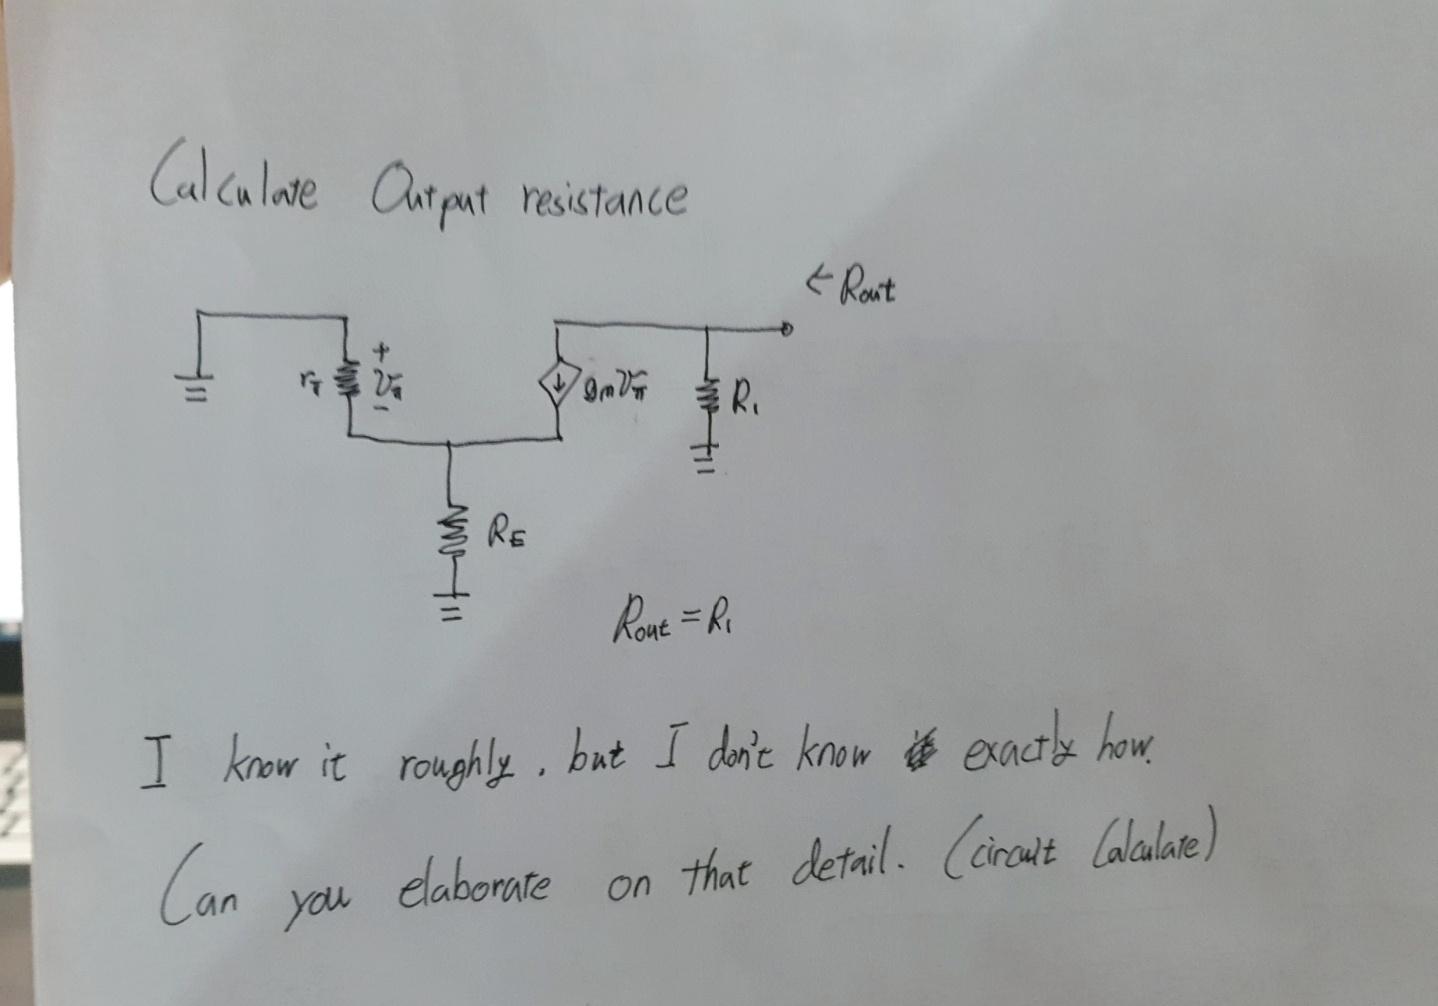 Calculate Output resistance
← Rout
rπ + vπ - gmvπ R1
RE
Rout = R1
I know it roughly, but I don't know exactly how.
Can you elaborate on that detail. (circuit Calculate)